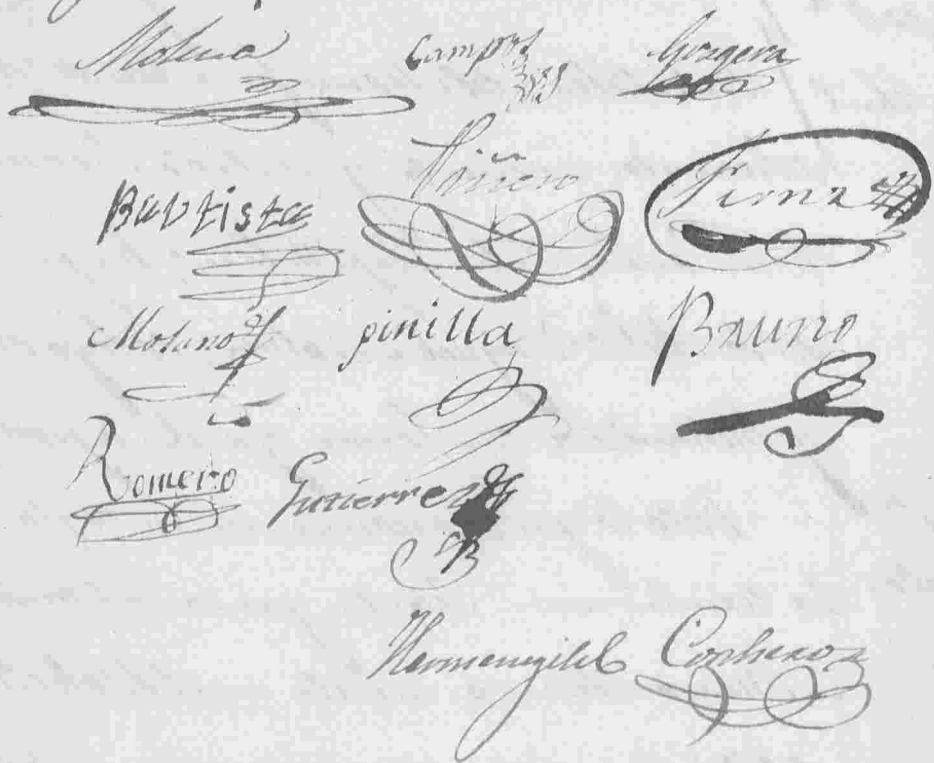 Molina Campos Gragera
Bautista Piñero
Mosano pinilla Bruno
Romero Gutierrez
Hermenegildo